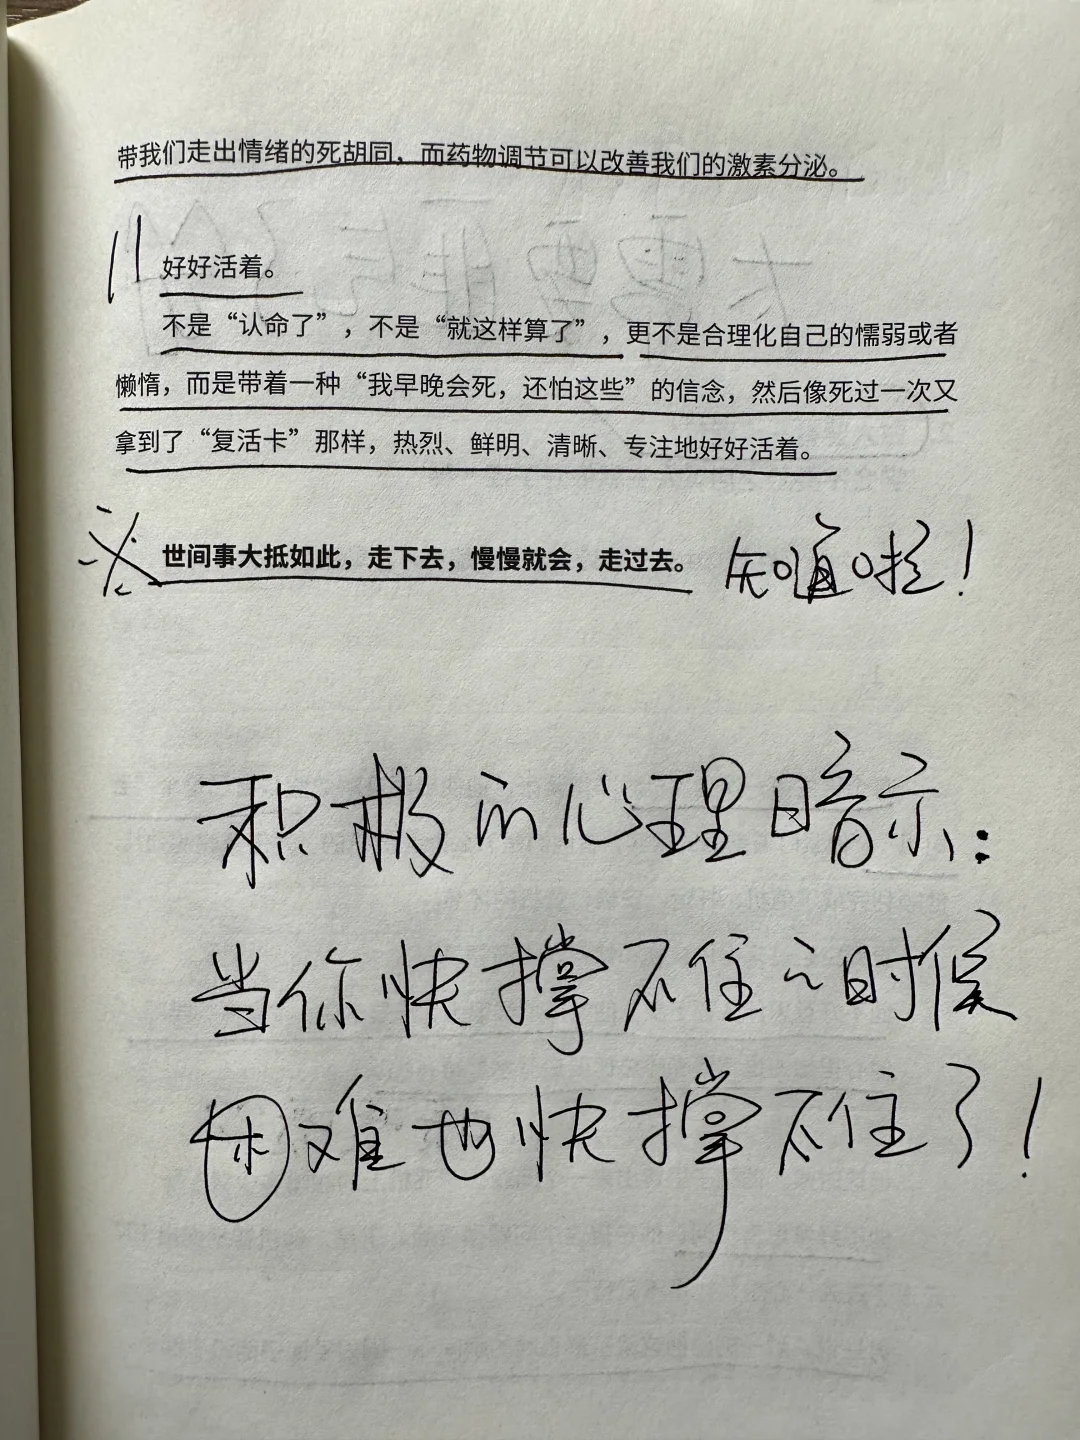 带我们走出情绪的死胡同，而药物调节可以改善我们的激素分泌。
好好活着。
不是“认命了”，不是“就这样算了”，更不是合理化自己的懦弱或者
懒惰，而是带着一种“我早晚会死，还怕这些”的信念，然后像死过一次又
拿到了“复活卡”那样，热烈、鲜明、清晰、专注地好好活着。
世间事大抵如此，走下去，慢慢就会，走过去。 知道啦！
积极的心理暗示：
当你快撑不住的时候
困难也快撑不住了！